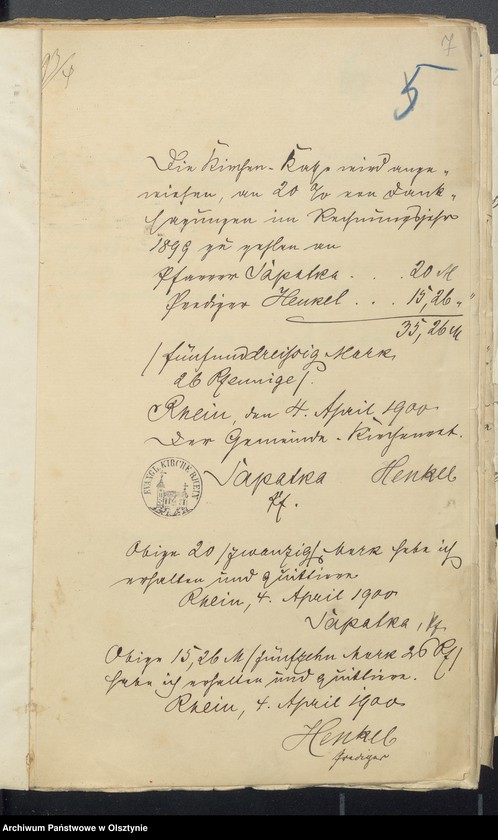 7
5
Die Kirchen-Kasse wird ange-
wiesen, an 20 % von Dank-
sagungen im Rechnungsjahr
1899 zu zahlen an
Pfarrer Sapatka . . . 20 M
Prediger Henkel . . . 15,26 "
35,26 M
/ fünfunddreißig Mark
26 Pfennige /.
Rhein, den 4. April 1900
Der Gemeinde-Kirchenrat.
EVANGL. KIRCHE RHEIN
Sapatka Henkel
Pf.
Obige 20 /zwanzig/ Mark habe ich
erhalten und quittiere
Rhein, 4. April 1900
Sapatka, Pf.
Obige 15,26 M /fünfzehn Mark 26 Pf/
habe ich erhalten und quittiere.
Rhein, 4. April 1900
Henkel
Prediger
Archiwum Państwowe w Olsztynie